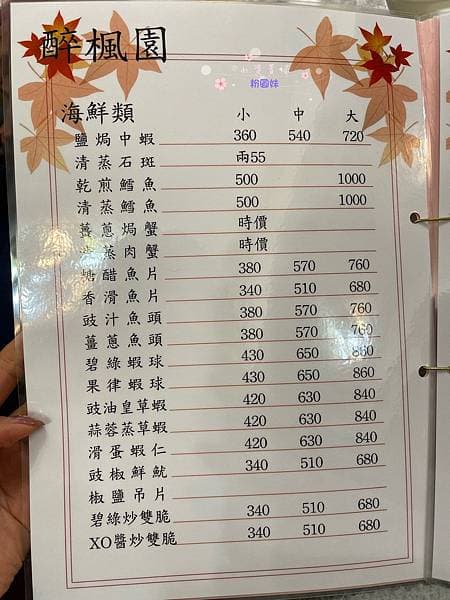 醉楓園
粉圓妹
海鮮類 小 中 大
鹽焗中蝦 360 540 720
清蒸石斑 兩55
乾煎鱈魚 500 1000
清蒸鱈魚 500 1000
薑蔥焗蟹 時價
蒸肉蟹 時價
糖醋魚片 380 570 760
香滑魚片 340 510 680
豉汁魚頭 380 570 760
薑蔥魚頭 380 570 760
碧綠蝦球 430 650 860
果律蝦球 430 650 860
豉油皇草蝦 420 630 840
蒜蓉蒸草蝦 420 630 840
滑蛋蝦仁 420 630 840
豉椒鮮魷 340 510 680
椒鹽吊片
碧綠炒雙脆 340 510 680
XO醬炒雙脆 340 510 680